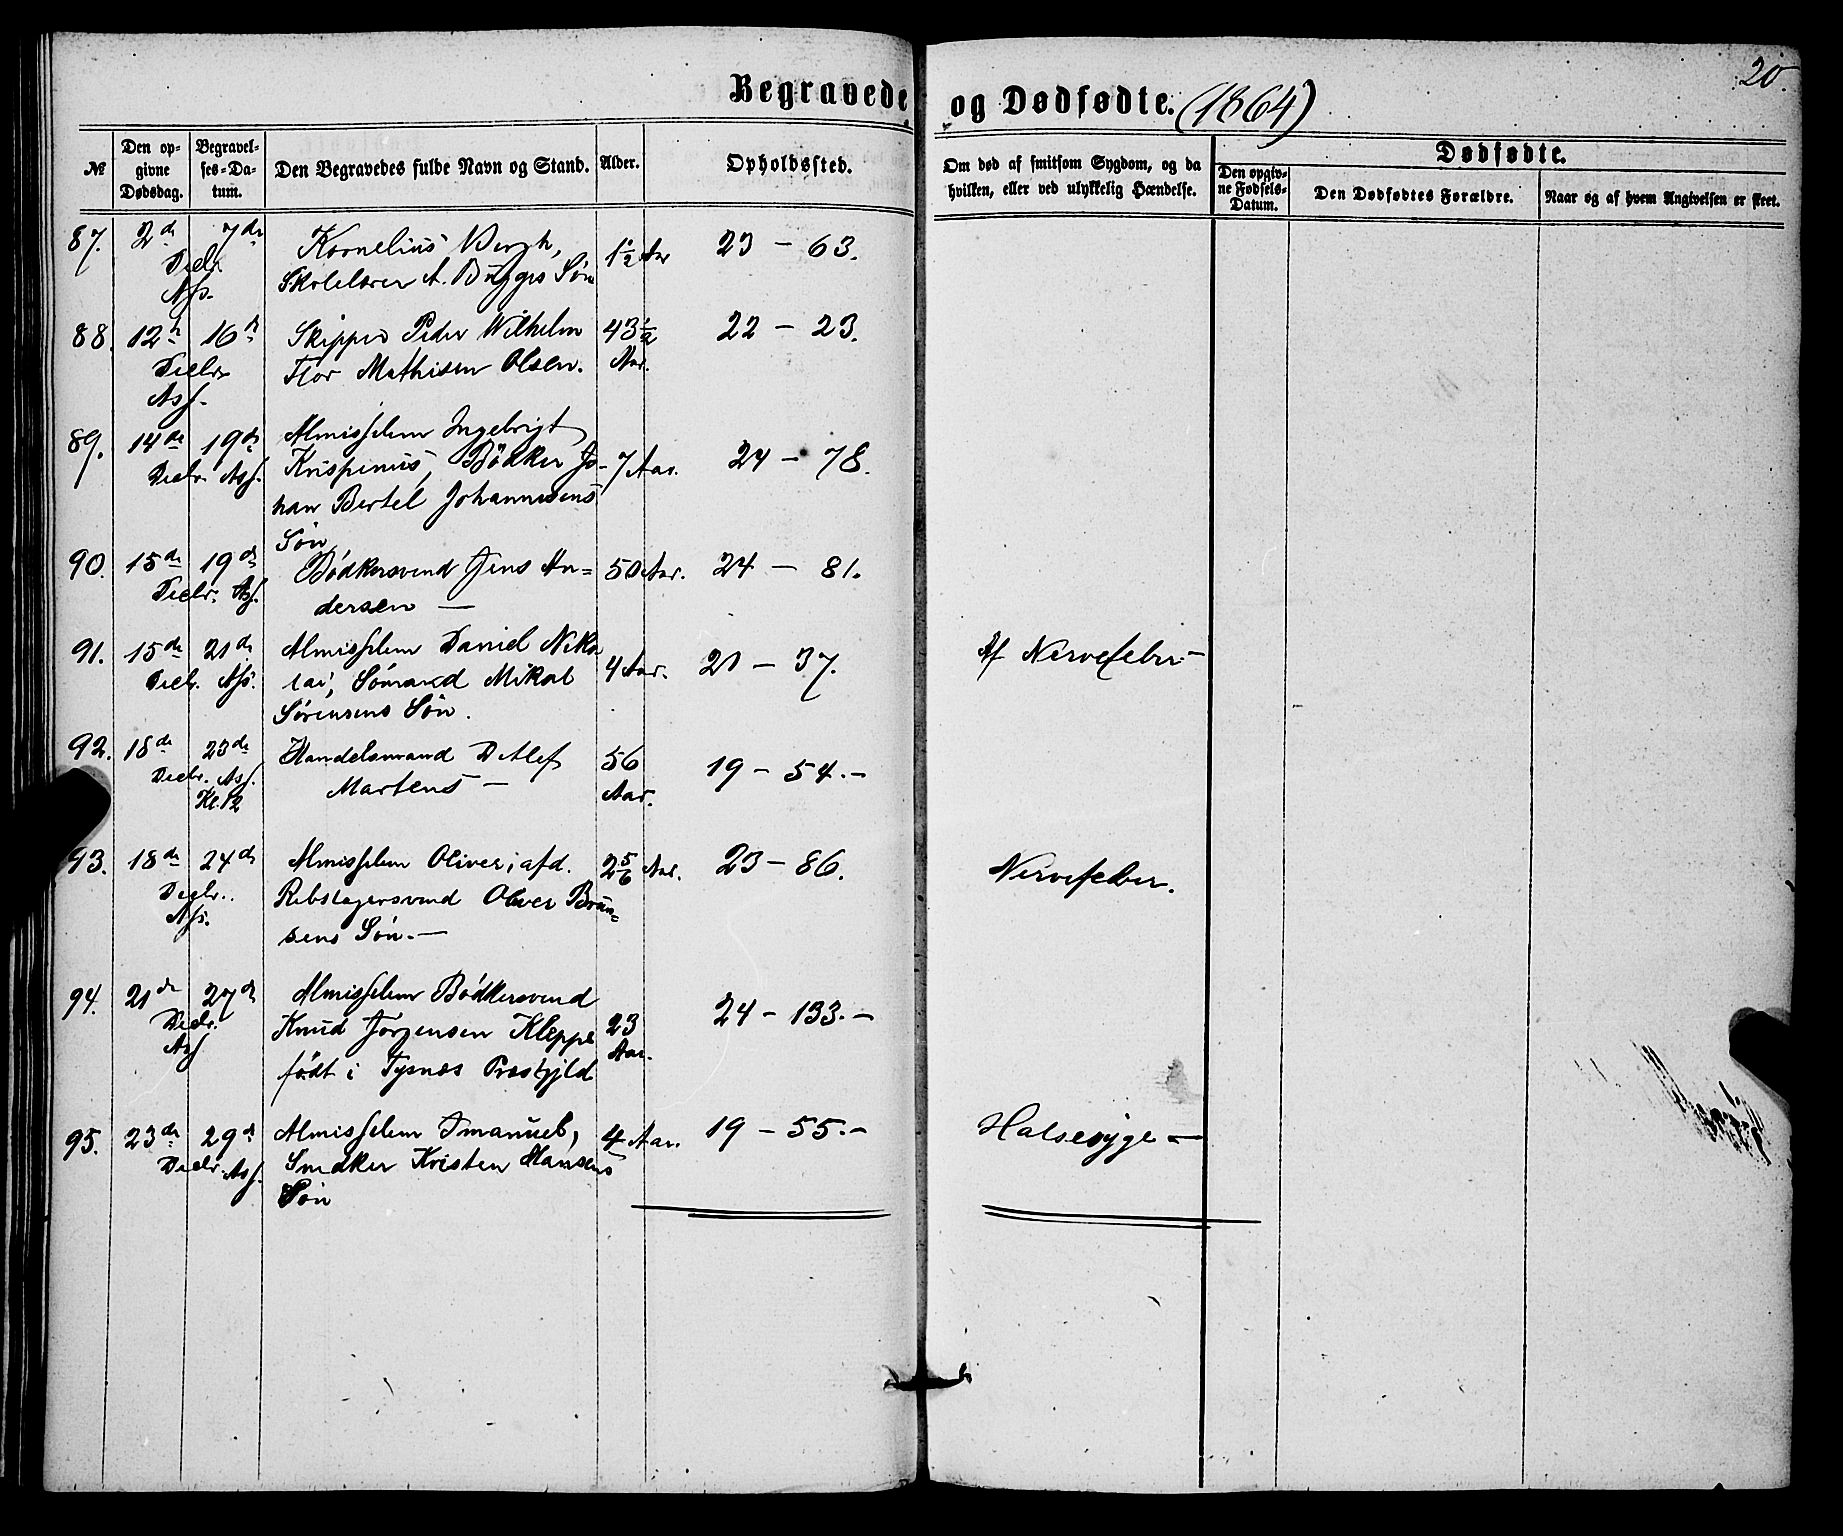 20.
Begravede og Dødfødte. (1864)
№
Den opgivne Dødsdag.
Begravelses-Datum.
Den Begravedes fulde Navn og Stand.
Alder.
Opholdssted.
Om død af smitsom Sygdom, og da hvilken, eller ved ulykkelig Hændelse.
Dødfødte.
Den opgivne Fødsels-Datum.
Den Dødfødtes Forældre.
Naar og af hvem Angivelsen er skeet.
87. 2d 7de Kornelius Bergh, 1½ Aar 23 - 63.
Decbr Skolelærer A. Bugges Søn
Ass.
88. 12te 16d Skipper Peder Wilhelm 43½ 22 - 23.
Decbr. Flor Mathisen Olsen. Aar.
Ass.
89. 14de 19de Almisselem Ingebrigt
Decbr. Ass. Krispinus, Bødker Jo- 7 Aar. 24 - 78.
han Bertel Johannesens
Søn
90. 15de 19de Bødkersvend Jens An- 50 Aar. 24 - 81.
Decbr. Ass. dersen —
91. 15de 21de Almisselem Daniel Niko- 4 Aar. 21 - 37. Af Nervefeber. -
Decbr. Ass. lai, Sømand Mikal
Sørensens Søn.
92. 18de 23de Handelsmand Detlef 56 19 - 54. -
Decbr. Ass. Martens — Aar.
Kl. 12
93. 18de 24de Almisselem Oliver, afd. 2 5/6 Aar. 23 - 86. Nervefeber.
Decbr. Rebslagersvend Oliver Brun-
Ass. sens Søn. —
94. 21de 27de Almisselem Bødkersvend
Decbr. Knud Jørgensen Kleppe 23 24 - 133. -
Ass født i Tysnæs Præstgjld Aar.
95. 23de 29d Almisselem Imanuel, 4 Aar. 19 - 55. - Halsesyge -
Decbr. Ass. Smdker Kristen Hansens
Søn